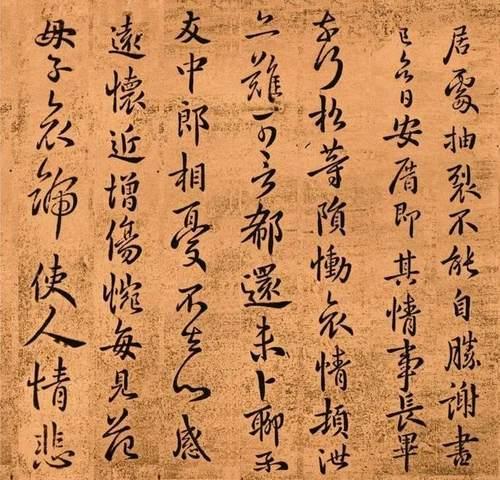 居處抽裂不能自勝謝書
日安厝即其情事長畢
松等隕慟哀情頓泄
難可言郗還未卜聊示
友中郎相憂不去心感
遠懷近增傷惋每見范
母子哀使人情悲